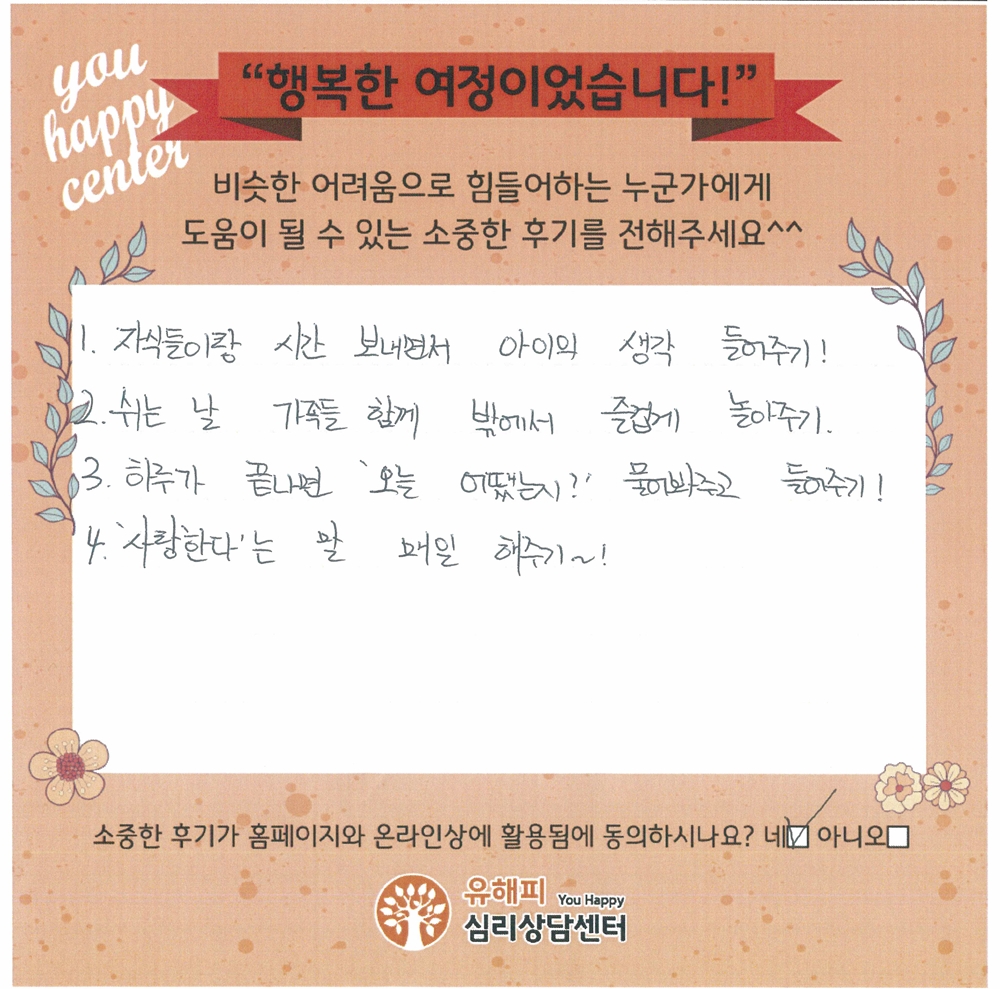 you
happy
center
“행복한 여정이었습니다!”
비슷한 어려움으로 힘들어하는 누군가에게
도움이 될 수 있는 소중한 후기를 전해주세요^^
1. 자식들이랑 시간 보내면서 아이의 생각 들어주기!
2. 쉬는 날 가족들 함께 밖에서 즐겁게 놀아주기.
3. 하루가 끝나면 '오늘 어땠는지?' 물어봐주고 들어주기!
4. '사랑한다'는 말 매일 해주기~!
소중한 후기가 홈페이지와 온라인상에 활용됨에 동의하시나요? 네☑ 아니오☐
유해피 You Happy
심리상담센터